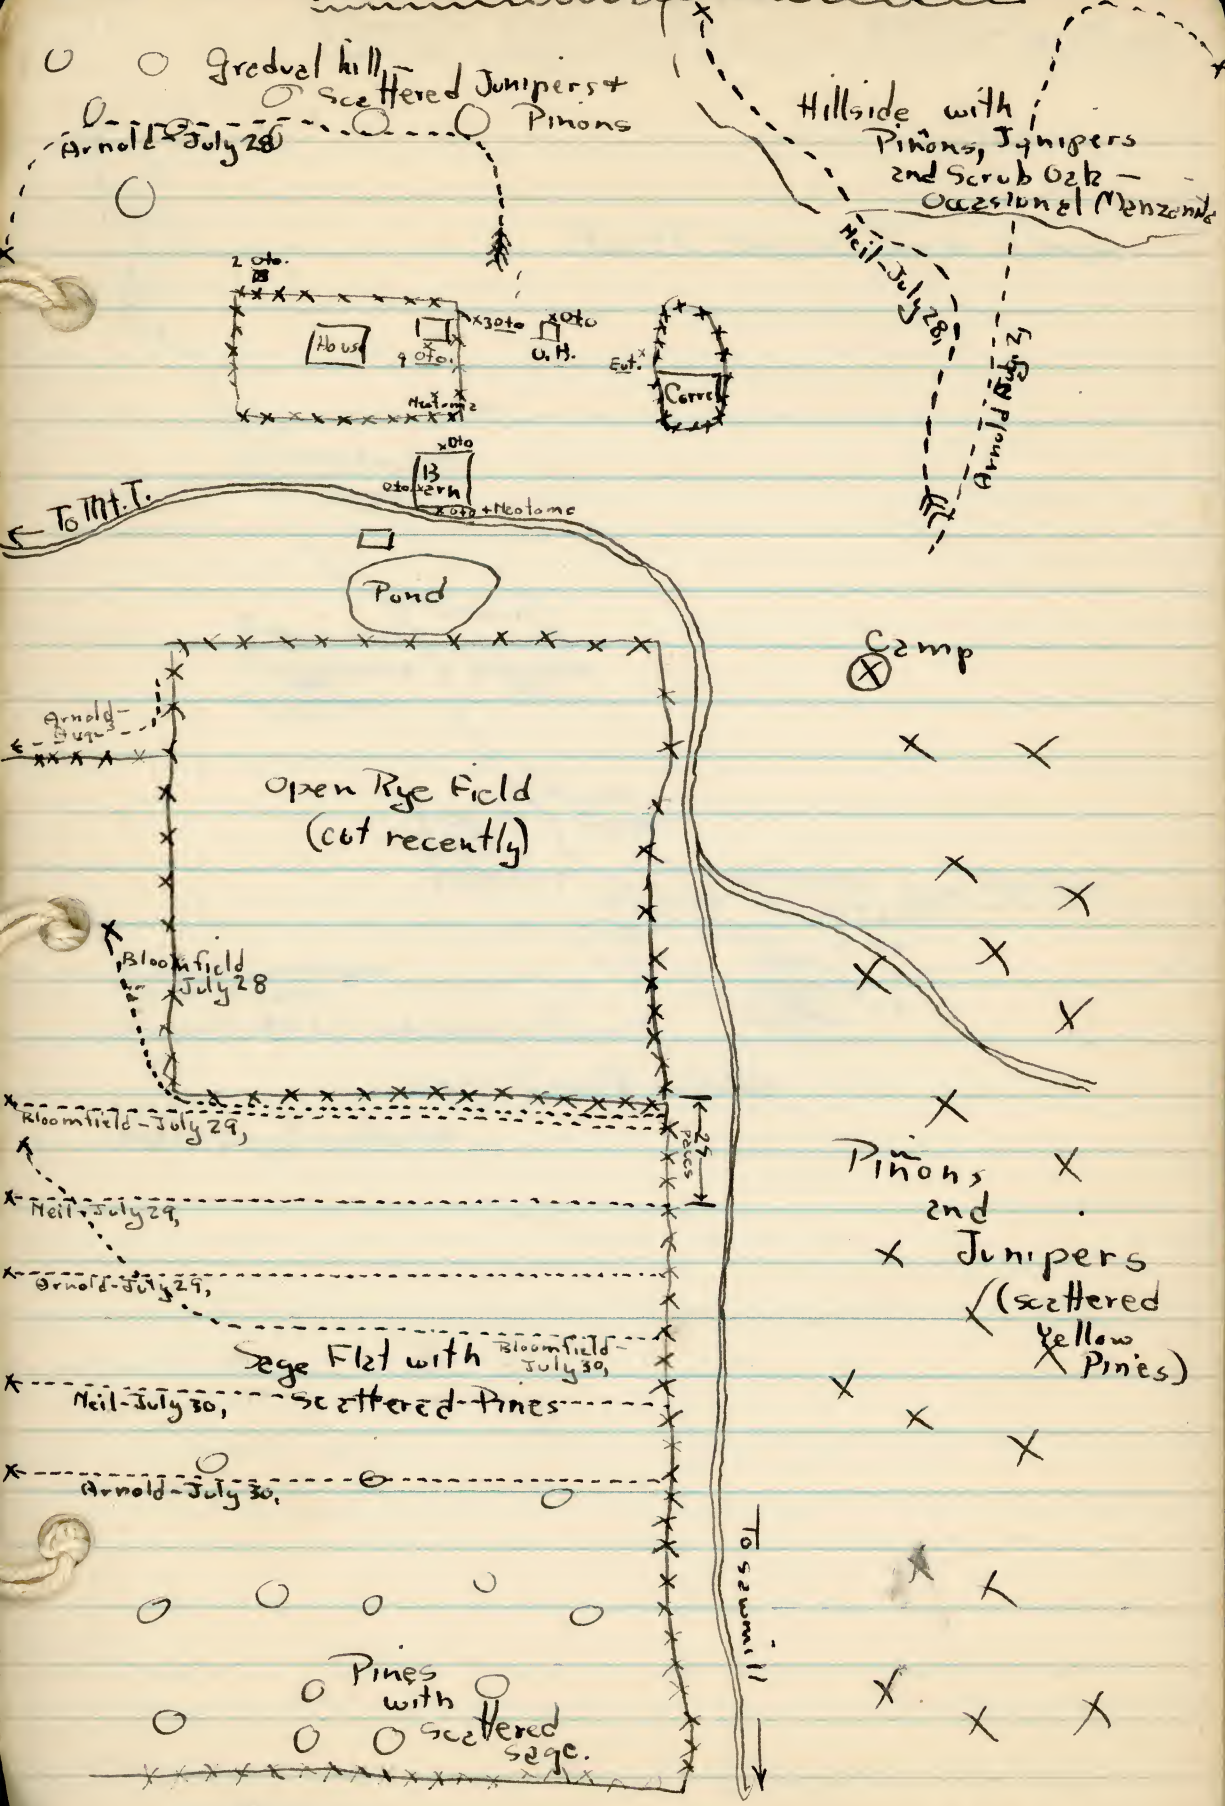 Gradual hill-
Scattered Junipers +
Piñons
Arnold-July 28
Hillside with
Piñons, Junipers
and Scrub Oak -
Occasional Manzanita
Neil-July 28,
Arnold Aug. 2,
2 Oto.
House
9 Oto.
x3 Oto
xOto
O.H.
Neotoma
Eut.
Corral
xOto
Barn
Oto.
Oto + Neotoma
To Mt. T.
Pond
Camp
Arnold-
Aug 3
Open Rye Field
(cut recently)
Bloomfield
July 28
Bloomfield-July 29,
25
paces
Neil-July 29,
Arnold-July 29,
Piñons
and
Junipers
(scattered
Yellow
Pines)
Sage Flat with
Scattered Pines
Bloomfield-
July 30,
Neil-July 30,
Arnold-July 30,
To sawmill
Pines
with
scattered
sage.